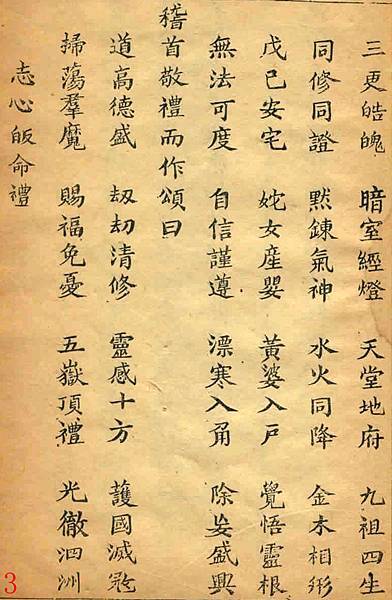 三更皓魄　暗室經燈　天堂地府　九祖四生
同修同證　黙錬氣神　水火同降　金木相衍
戊巳安宅　姹女産嬰　黃婆入戸　覺悟靈根
無法可度　自信謹遵　漂寒入角　除妄盛興
稽首敬禮而作頌曰
道高德盛　刼劫清修　靈感十方　護國滅寇
掃蕩羣魔　賜福免憂　五嶽頂禮　光徹泗洲
志心皈命禮
3